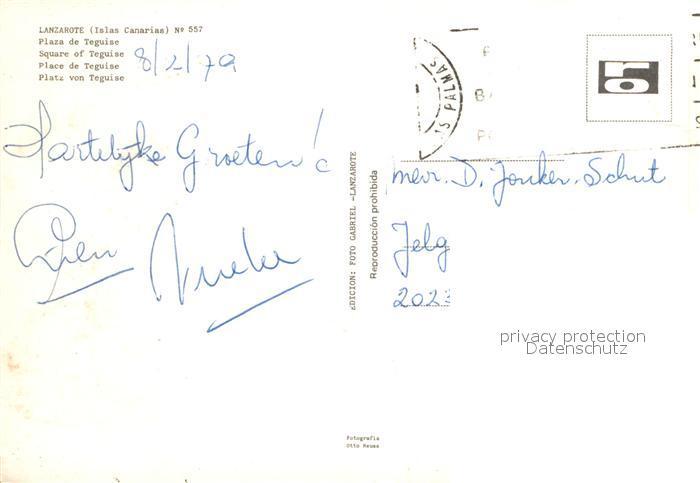 LANZAROTE (Islas Canarias) Nº 557
Plaza de Teguise
Square of Teguise
Place de Teguise
Platz von Teguise
8/2/79
Hartelyke Groeten
EDICION: FOTO GABRIEL -LANZAROTE
Reproducción prohibida
LAS PALMAS
mevr. D. Jonker-Schut
Jelg
2023
privacy protection
Datenschutz
Fotografía
Otto Reuss